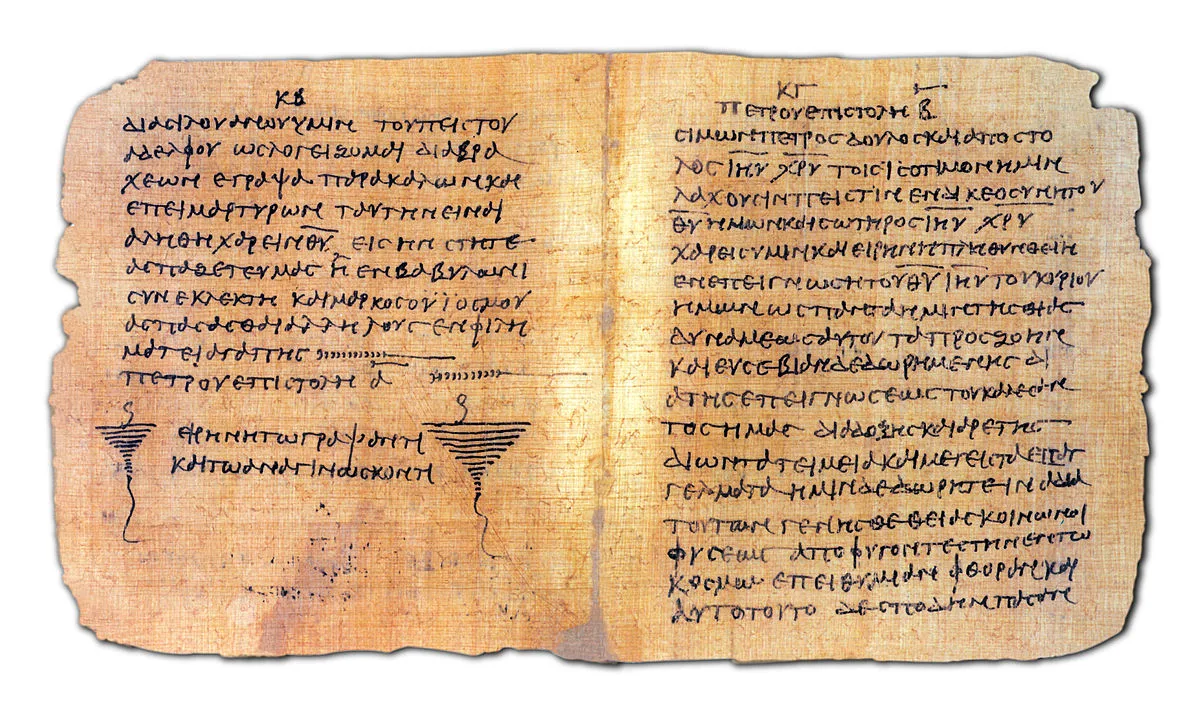 ΚΒ
ΔΙΑ ϹΙΛΟΥΑΝΩΥ ΥΜΙΝ ΤΟΥ ΠΕΙϹΤΟΥ
ΑΔΕΛΦΟΥ ΩϹ ΛΟΓΕΙΖΟΜΑΙ ΔΙΑ ΒΡΑ
ΧΕΩΝ ΕΓΡΑΨΑ ΠΑΡΑΚΑΛΩΝ ΚΑΙ
ΕΠΕΙΜΑΡΤΥΡΩΝ ΤΑΥΤΗΝ ΕΙΝΑΙ
ΑΛΗΘΗ ΧΑΡΕΙΝ Θ̅Υ̅ ΕΙϹ ΗΝ ϹΤΗΤΕ
ΑϹΠΑΖΕΤΕ ΥΜΑϹ Η ΕΝ ΒΑΒΥΛΩΝΙ
ϹΥΝΕΚΛΕΚΤΗ ΚΑΙ ΜΑΡΚΟϹ Ο ΥΙΟϹ ΜΟΥ
ΑϹΠΑϹΑϹΘΑΙ ΑΛΛΗΛΟΥϹ ΕΝ ΦΙΛΗ
ΜΑΤΕΙ ΑΓΑΠΗϹ
ΠΕΤΡΟΥ ΕΠΙϹΤΟΛΗ Α̅
ΕΙΡΗΝΗ ΤΩ ΓΡΑΨΑΝΤΙ
ΚΑΙ ΤΩ ΑΝΑΓΙΝΩϹΚΟΝΤΙ
ΚΓ
ΠΕΤΡΟΥ ΕΠΙϹΤΟΛΗ Β̅
ϹΙΜΩΝ ΠΕΤΡΟϹ ΔΟΥΛΟϹ ΚΑΙ ΑΠΟϹΤΟ
ΛΟϹ Ι̅Η̅Υ̅ Χ̅Ρ̅Υ̅ ΤΟΙϹ ΙϹΟΤΙΜΟΝ ΗΜΙΝ
ΛΑΧΟΥϹΙΝ ΠΕΙϹΤΙΝ ΕΝ ΔΙΚΕΟϹΥΝΗ ΤΟΥ
Θ̅Υ̅ ΗΜΩΝ ΚΑΙ ϹΩΤΗΡΟϹ Ι̅Η̅Υ̅ Χ̅Ρ̅Υ̅
ΧΑΡΕΙϹ ΥΜΙΝ ΚΑΙ ΕΙΡΗΝΗ ΠΛΗΘΥΝΘΕΙΗ
ΕΝ ΕΠΕΙΓΝΩϹΗ ΤΟΥ Θ̅Υ̅ Ι̅Η̅Υ̅ ΤΟΥ ΚΥΡΙΟΥ
ΗΜΩΝ ΩϹ ΠΑΝΤΑ ΗΜΙΝ ΤΗϹ ΘΙΑϹ
ΔΥΝΑΜΕΩϹ ΑΥΤΟΥ ΤΑ ΠΡΟϹ ΖΩΗΝ
ΚΑΙ ΕΥϹΕΒΙΑΝ ΔΕΔΩΡΗΜΕΝΗϹ ΔΙ
Α ΤΗϹ ΕΠΕΙΓΝΩϹΕΩϹ ΤΟΥ ΚΑΛΕϹΑΝ
ΤΟϹ ΗΜΑϹ ΔΙΑ ΔΟΞΗϹ ΚΑΙ ΑΡΕΤΗϹ
ΔΙ ΩΝ ΤΑ ΤΕΙΜΕΙΑ ΚΑΙ ΜΕΓΕΙϹΤΑ ΕΠΑΓ
ΓΕΛΜΑΤΑ ΗΜΙΝ ΔΕΔΩΡΗΤΕ ΙΝΑ ΔΙΑ
ΤΟΥΤΩΝ ΓΕΝΗϹΘΕ ΘΕΙΑϹ ΚΟΙΝΩΝΟΙ
ΦΥϹΕΩϹ ΑΠΟΦΥΓΟΝΤΕϹ ΤΗΝ ΕΝ ΤΩ
ΚΟϹΜΩ ΕΠΕΙΘΥΜΙΑΝ ΦΘΟΡΑΝ ΚΑΙ
ΑΥΤΟ ΤΟΥΤΟ ΔΕ ϹΠΟΔΗΝ ΠΑϹΑΝ